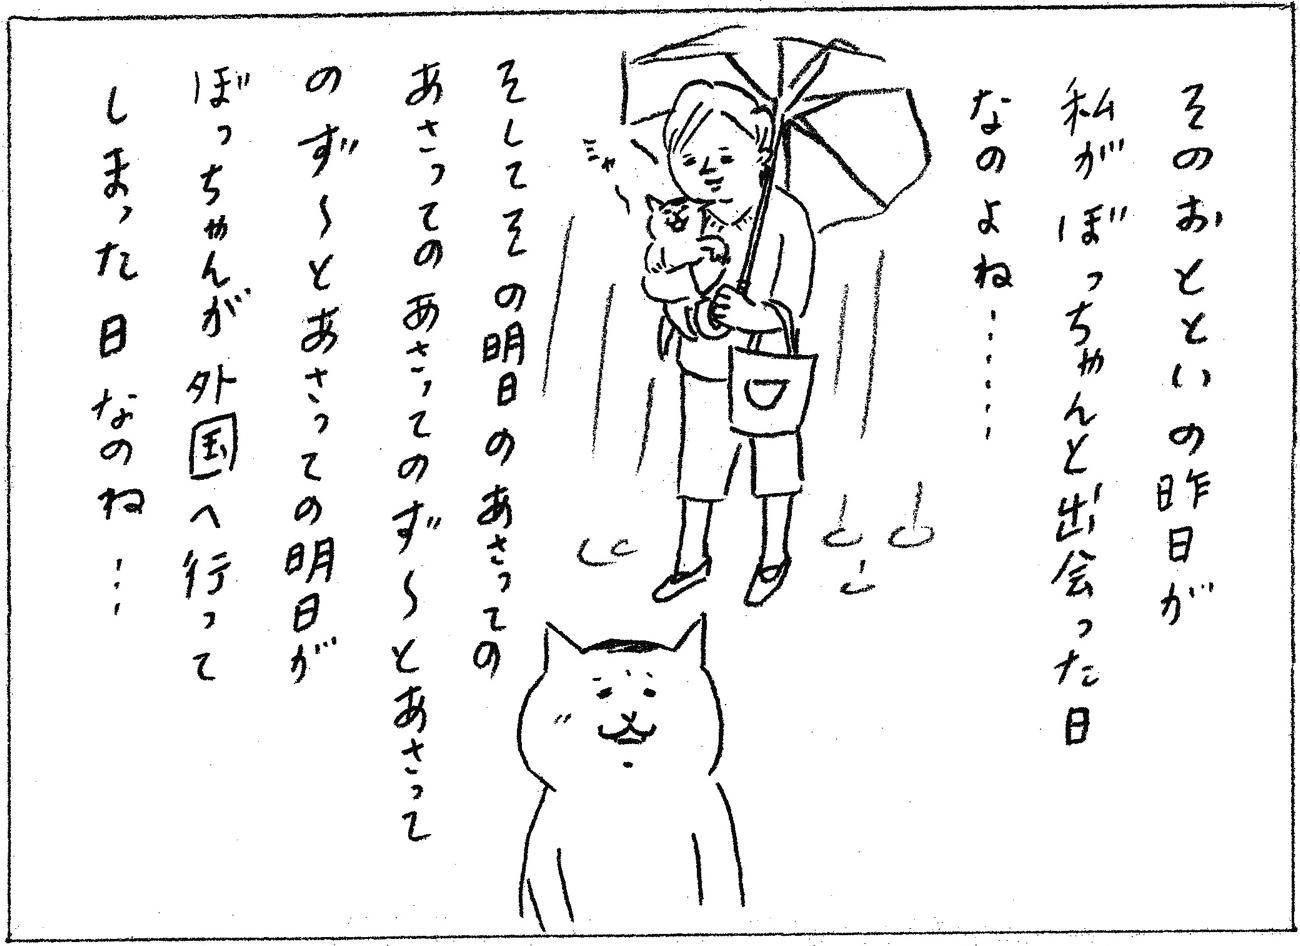 そのおとといの昨日が
私がぼっちゃんと出会った日
なのよね……
ミャ〜
そしてその明日のあさっての
あさってのあさってのず〜とあさって
のず〜とあさっての明日が
ぼっちゃんが外国へ行って
しまった日なのね…